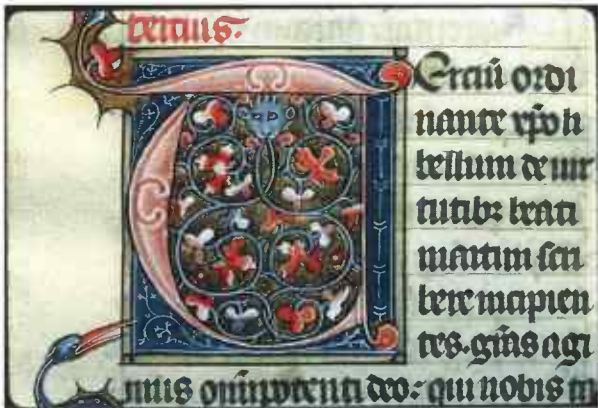 tercius.
Erciū ordi
nante xp̄o li
bellum de uir
tutibꝫ beati
martini scri
bere incipien
tes. gr̄as agi
mus omīpotenti deo: qui nobis